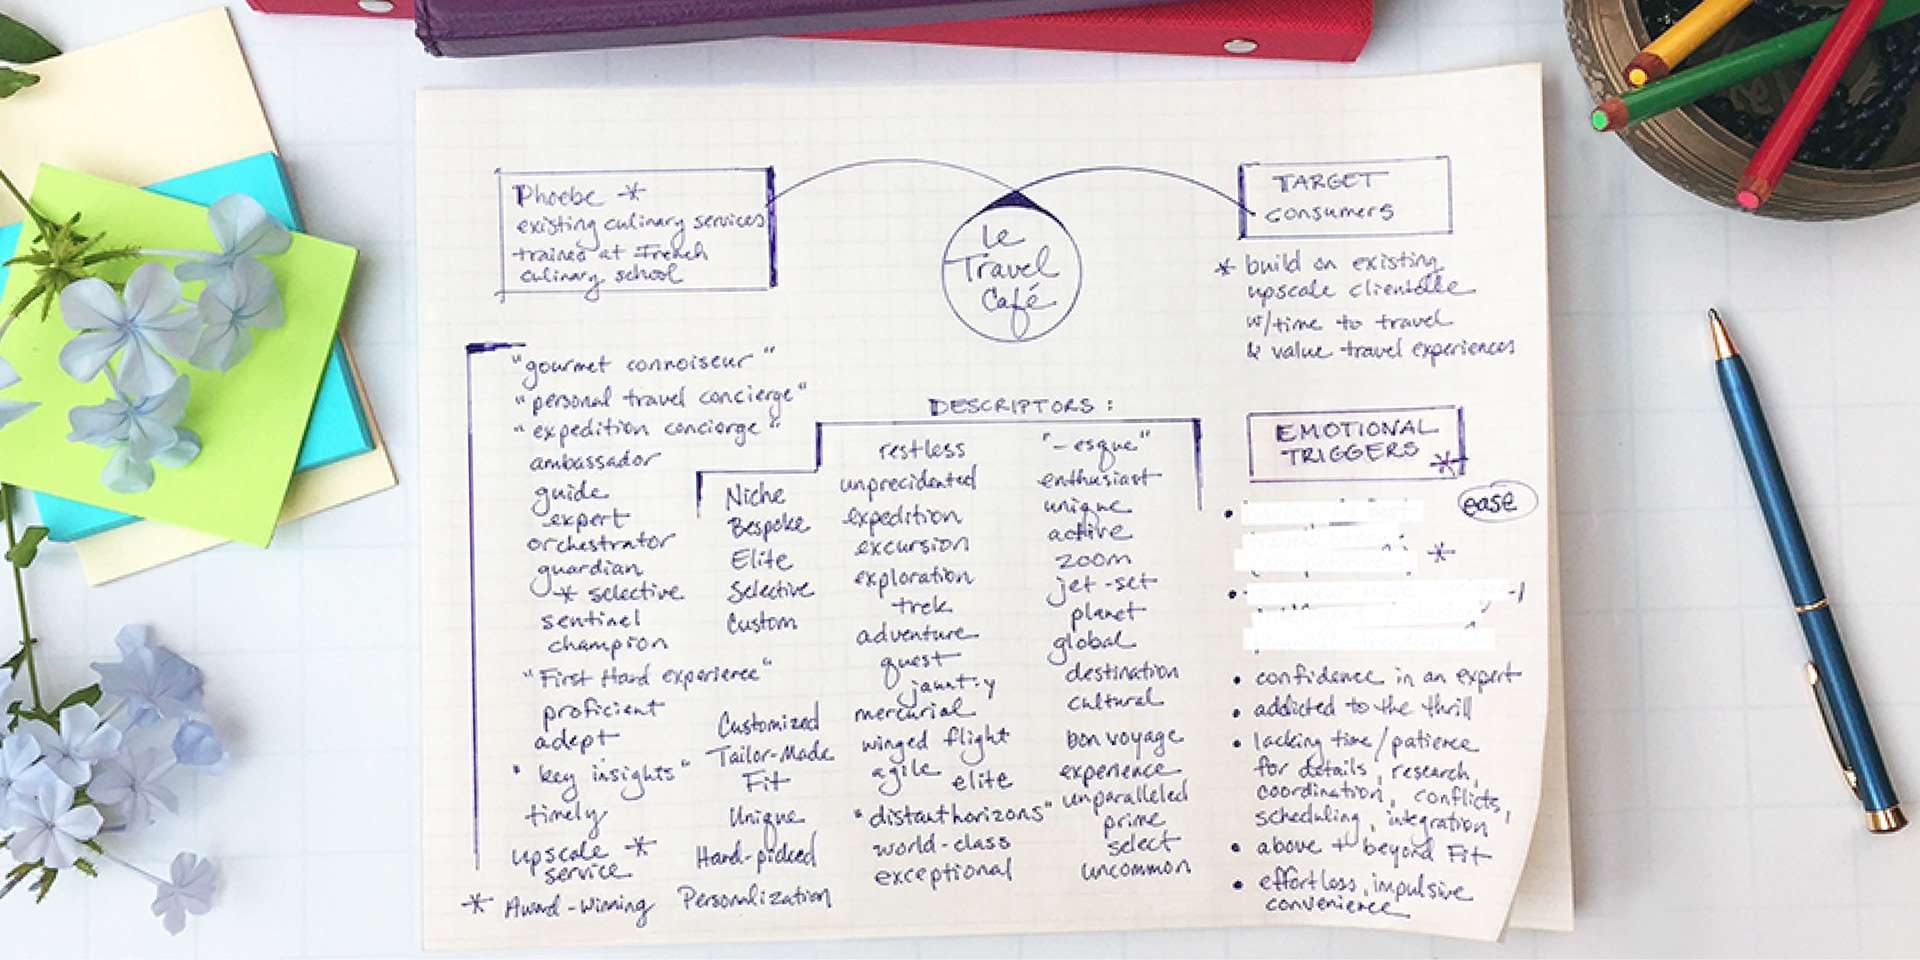 Phoebe *
existing culinary services
trained at French
culinary school
Le
Travel
Café
TARGET
consumers
* build on existing
upscale clientelle
w/time to travel
& value travel experiences
"gourmet connoiseur"
"personal travel concierge"
"expedition concierge"
ambassador
guide
expert
orchestrator
guardian
* selective
sentinel
champion
"First Hand experience"
proficient
adept
"key insights"
timely
upscale *
service
* Award-Winning
DESCRIPTORS:
Niche
Bespoke
Elite
Selective
Custom
Customized
Tailor-Made
Fit
Unique
Hand-picked
Personalization
restless
unprecidented
expedition
excursion
exploration
trek
adventure
quest
jaunt-y
mercurial
winged flight
agile elite
"distant horizons"
world-class
exceptional
"-esque"
enthusiast
unique
active
zoom
jet-set
planet
global
destination
cultural
bon voyage
experience
unparalleled
prime
select
uncommon
EMOTIONAL
TRIGGERS *
ease
*
• confidence in an expert
• addicted to the thrill
• lacking time/patience
for details, research,
coordination, conflicts,
scheduling, integration
• above + beyond Fit
• effortless, impulsive
convenience